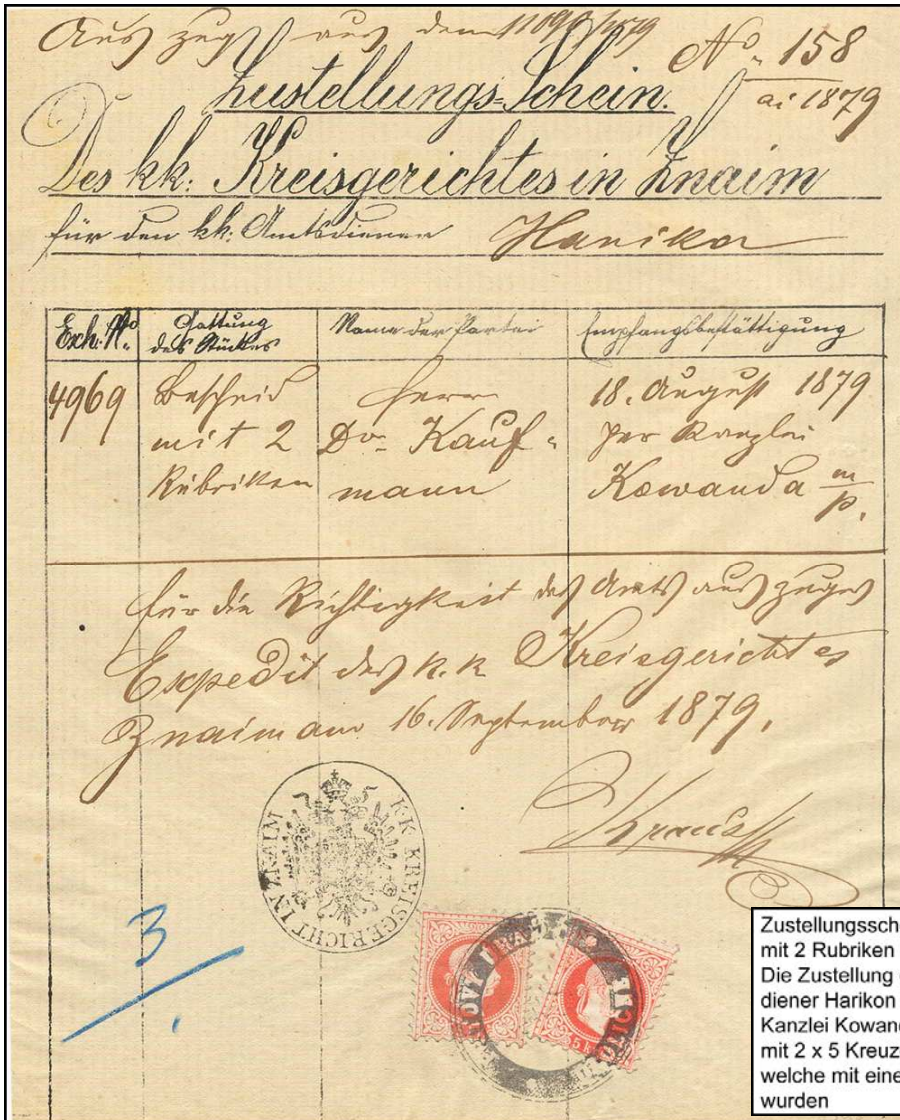 Auszug aus dem
No. 158
ai 1879
Zustellungs-Schein.
Des kk: Kreisgerichtes in Znaim
für den kk: Amtsdiener Hanika
Exh. No. Gattung des Stückes Name der Partei Empfangsbestättigung
4969 Bescheid Herr 18. August 1879
mit 2 Dr. Kauf- per Kanzlei
Rubriken mann Kowanda m/p.
für die Richtigkeit des Amtsauszuges
Expedit des k.k Kreisgerichtes
Znaim am 16. September 1879.
K.K. KREISGERICHT IN ZNAIM
3
5 k
Zustellungssch
mit 2 Rubriken
Die Zustellung
diener Harikon
Kanzlei Kowand
mit 2 x 5 Kreuz
welche mit eine
wurden